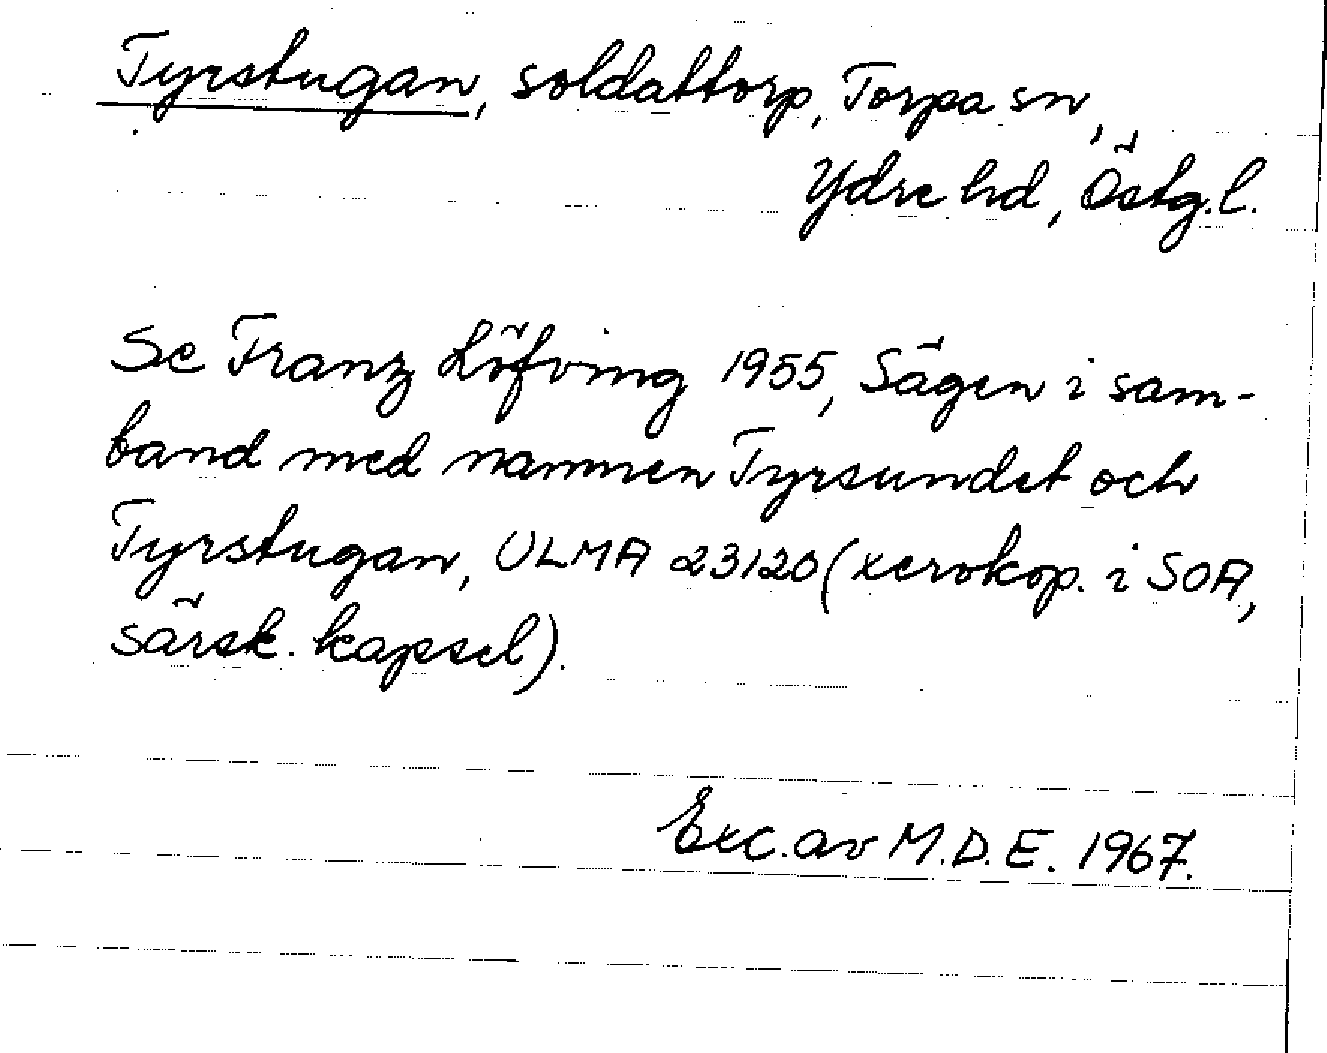 Tyrstugan, soldattorp, Torpa sn,
Ydre hd, Östg.l.
Se Franz Löfving 1955, Sägen i sam-
band med namnen Tyrsundet och
Tyrstugan, ULMA 23120 (xerokop. i SOA,
särsk. kapsel).
Exc. av M.D.E. 1967.